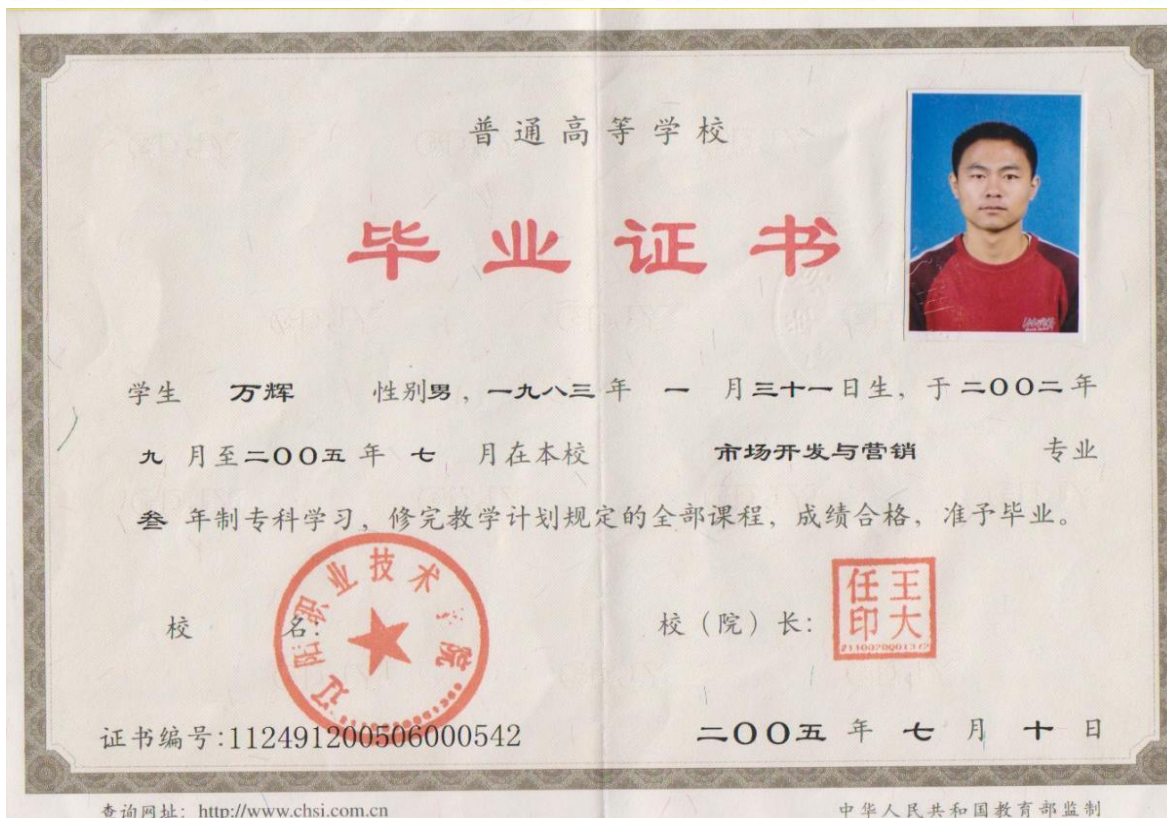 普通高等学校
毕业证书
学生 万辉 性别男，一九八三年 一 月三十一日生，于二〇〇二年
九 月至二〇〇五年 七 月在本校 市场开发与营销 专业
叁 年制专科学习，修完教学计划规定的全部课程，成绩合格，准予毕业。
辽阳职业技术学院
校 名：
校（院）长：
王大任印
证书编号:112491200506000542
二〇〇五 年 七 月 十 日
查询网址：http://www.chsi.com.cn
中华人民共和国教育部监制